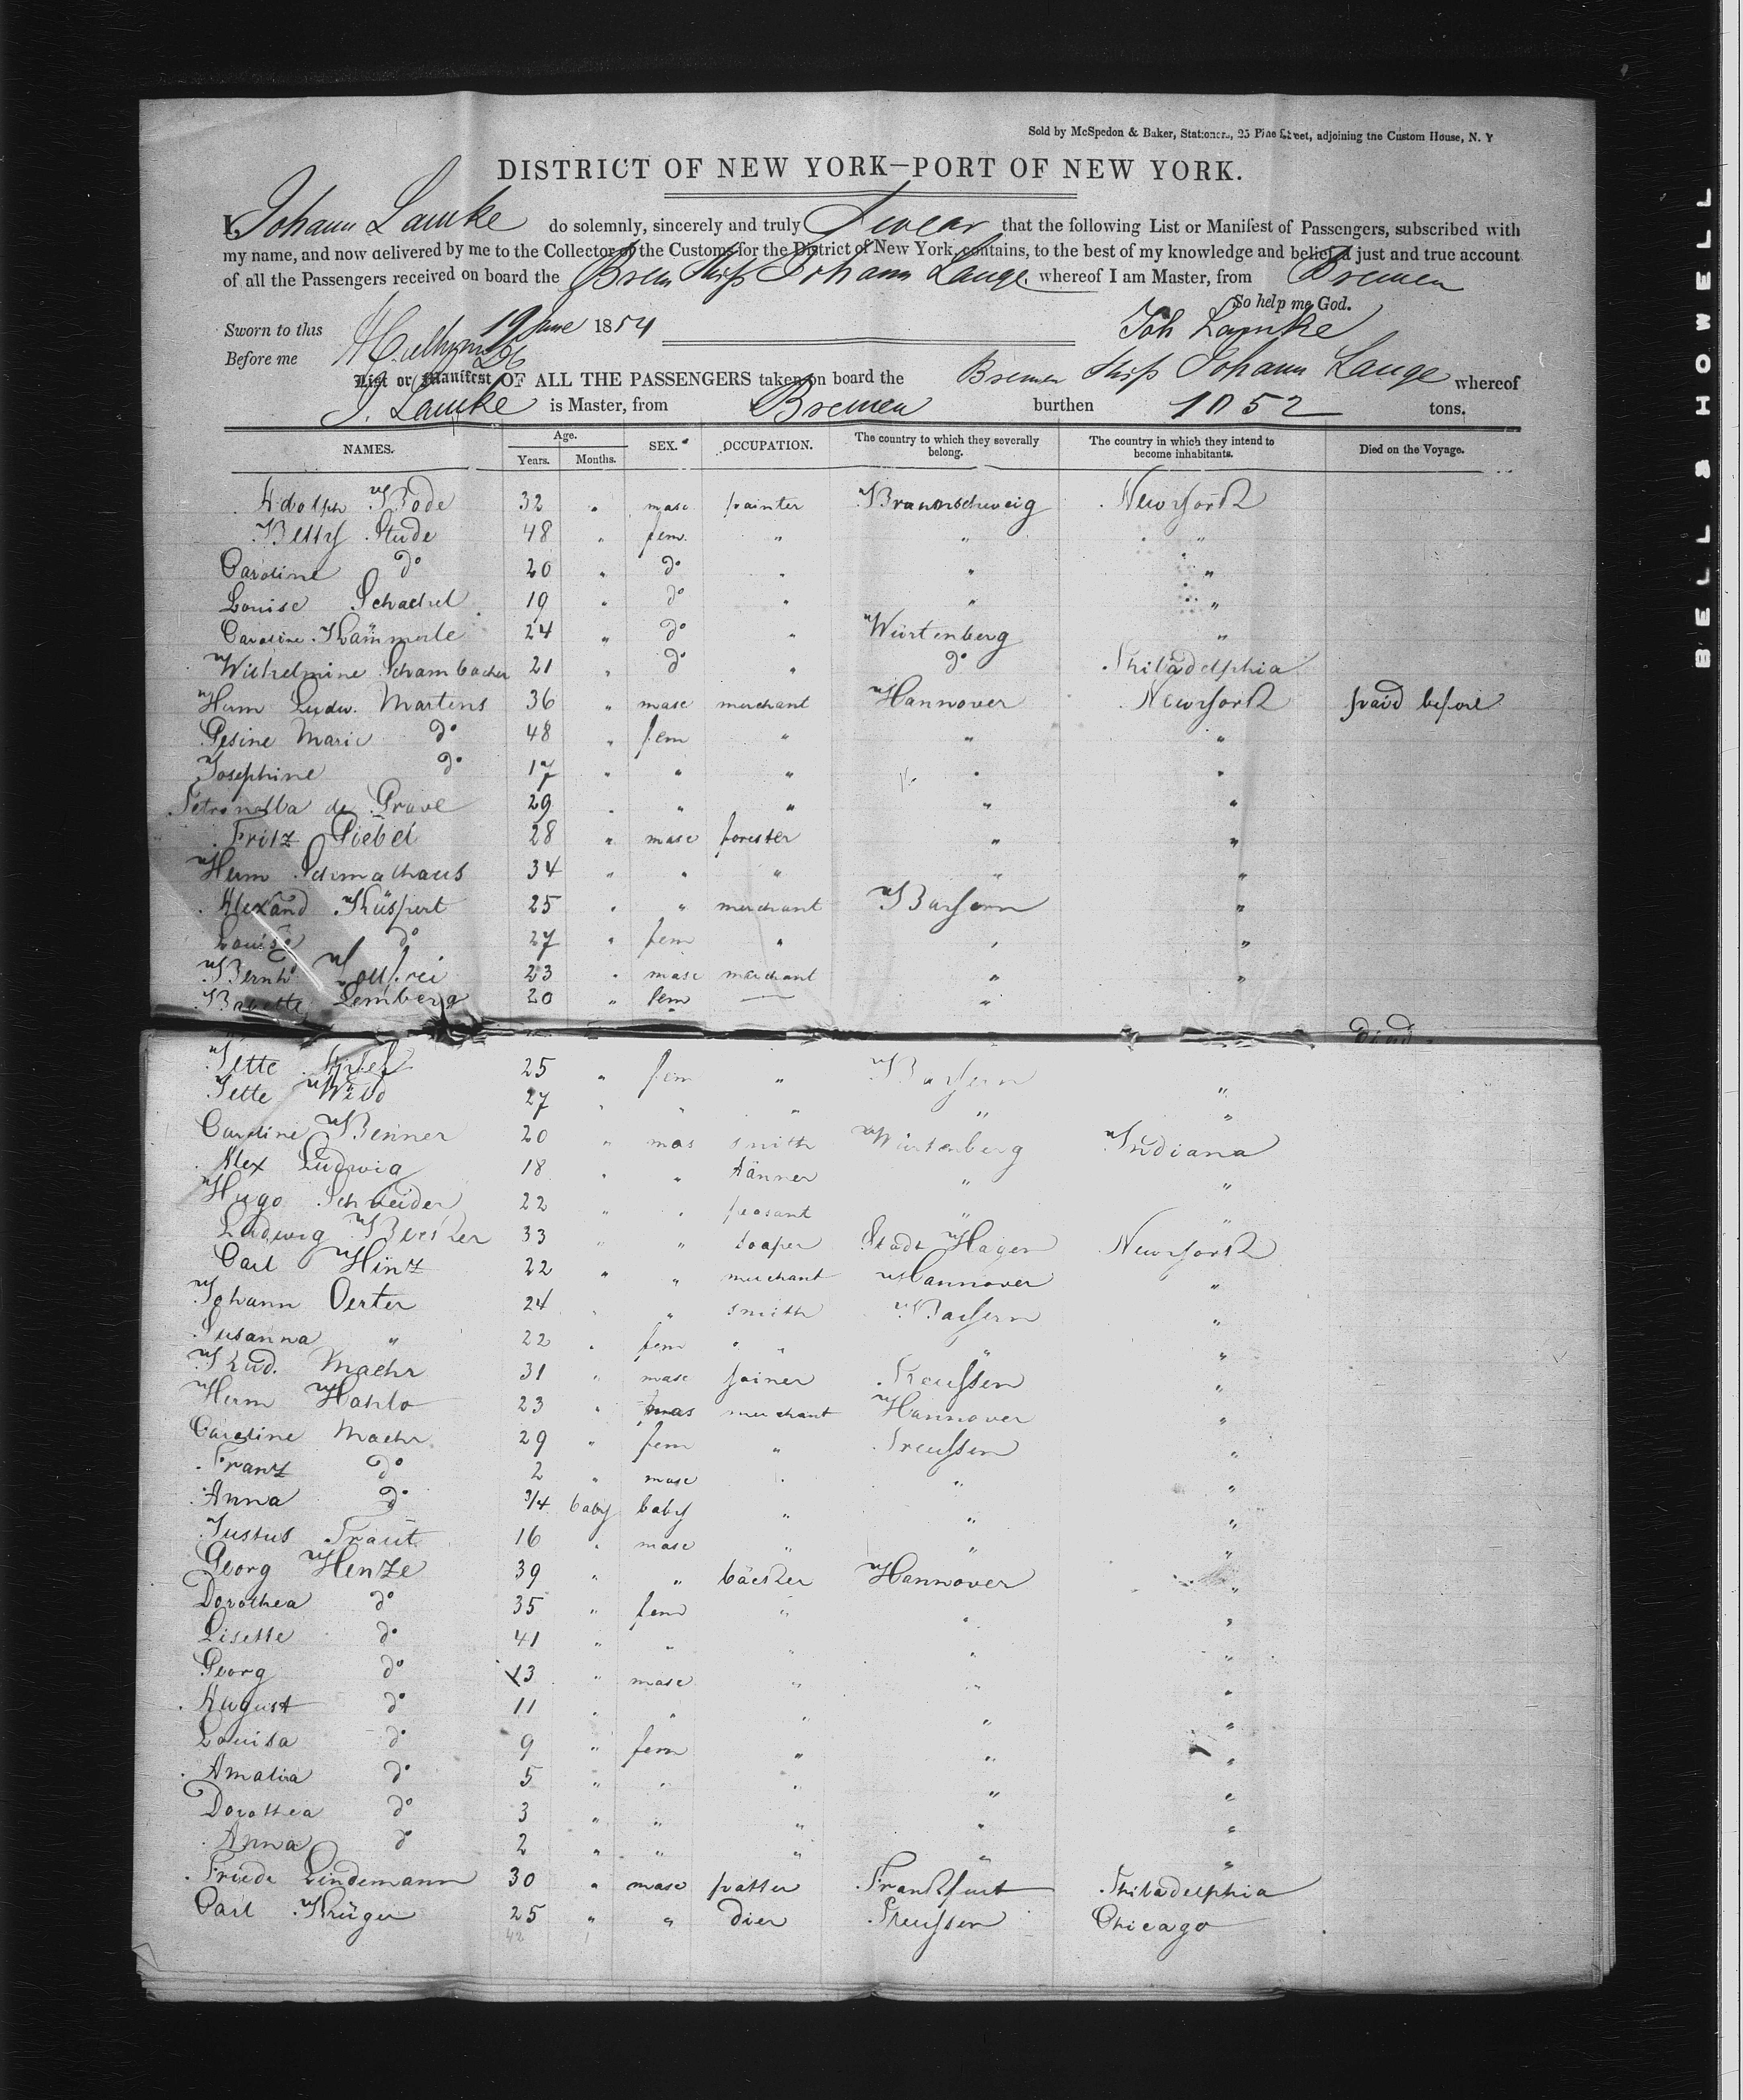 Sold by McSpedon & Baker, Stationers, 25 Pine Street, adjoining the Custom House, N. Y
DISTRICT OF NEW YORK—PORT OF NEW YORK.
I, Johann Lamke do solemnly, sincerely and truly Swear that the following List or Manifest of Passengers, subscribed with
my name, and now delivered by me to the Collector of the Customs for the District of New York, contains, to the best of my knowledge and belief, a just and true account
of all the Passengers received on board the Brem Ship Johann Lange whereof I am Master, from Bremen
So help me God.
Sworn to this 19 June 1854 Joh Lamke
Before me
List or Manifest OF ALL THE PASSENGERS taken on board the Bremer Ship Johann Lange whereof
J. Lamke is Master, from Bremen burthen 1052 tons.
NAMES. Age. Years. Months. SEX. OCCUPATION. The country to which they severally belong. The country in which they intend to become inhabitants. Died on the Voyage.
Adolph Bode 32 " masc painter Braunschweig Newyork
Betty Stude 48 " fem. " " "
Caroline do 20 " do " " "
Louise Schachel 19 " do " " "
Caroline Kämmerle 24 " do " Würtenberg "
Wilhelmine Schambacher 21 " do " do Philadelphia
Herm Ludw. Martens 36 " masc merchant Hannover Newyork paid before
Gesine Marie do 48 " fem " " "
Josephine do 17 " " " " "
Petronella de Grave 29 " " " " "
Fritz Giebel 28 " masc forester " "
Herm Schmachaus 34 " " " " "
Alexand Küspert 25 " " merchant Bayern "
Louise do 27 " fem " " "
Bernhd 23 " masc merchant " "
Babette Lemberg 20 " fem — "
died
Jette 25 " fem " Bayern "
Jette Wild 27 " " " " "
Caroline Benner 20 " mas smith Würtenberg Indiana
Alex Ludwig 18 " " tänner " "
Hugo Schneider 22 " " peasant " "
Ludwig Becker 33 " " soaper Stadt Hagen Newyork
Carl Hinz 22 " " merchant Hannover "
Johann Oerter 24 " " smith Bayern "
Susanna " 22 " fem " " "
Rud. Maehr 31 " masc joiner Preussen "
Herm Hahlo 23 " mas merchant Hannover "
Caroline Maehr 29 " fem " Preussen "
Franz do 2 " masc " " "
Anna do 3/4 baby baby " " "
Justus Traut 16 " masc " " "
Georg Henze 39 " " bäcker Hannover "
Dorothea do 35 " fem " " "
Lisette do 41 " " " " "
Georg do 13 " masc " " "
August do 11 " " " " "
Louisa do 9 " fem " " "
Amalia do 5 " " " " "
Dorothea do 3 " " " " "
Anna do 2 " " " " "
Friedr Lindemann 30 " masc Frankfurt Philadelphia
Carl Krüger 25 " " dier Preussen Chicago
42
BELL & HOWELL